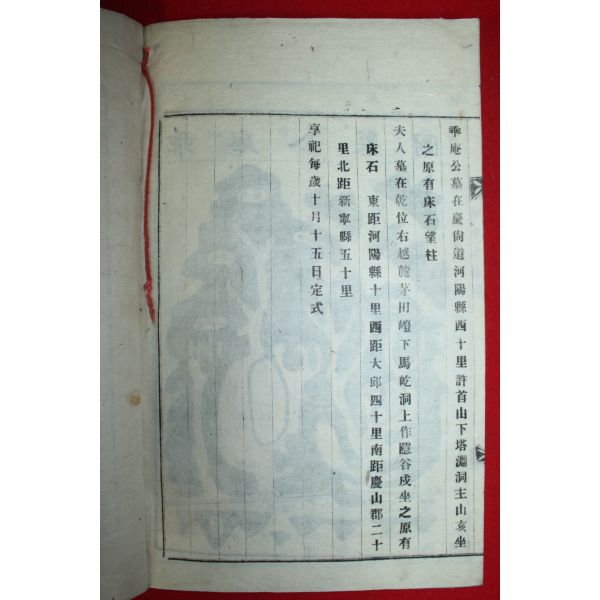 乖庵公墓在慶尙道河陽縣西十里許首山下塔淵洞主山亥坐
之原有床石望柱
夫人墓在乾位右越麓茅田嶝下馬屹洞上作隱谷戌坐之原有
床石 東距河陽縣十里西距大邱四十里南距慶山郡二十
里北距新寧縣五十里
享祀每歲十月十五日定式